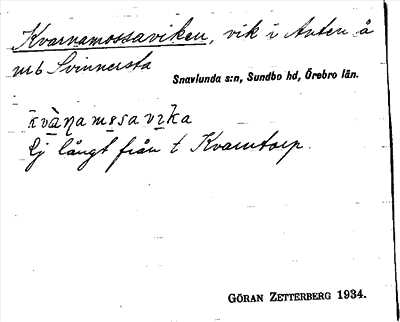 Kvarnamossaviken, vik i Anten å
mb Svinnersta
Snavlunda s:n, Sundbo hd, Örebro län.
kvànamssavika
Ej långt från t Kvarntorp.
GÖRAN ZETTERBERG 1934.